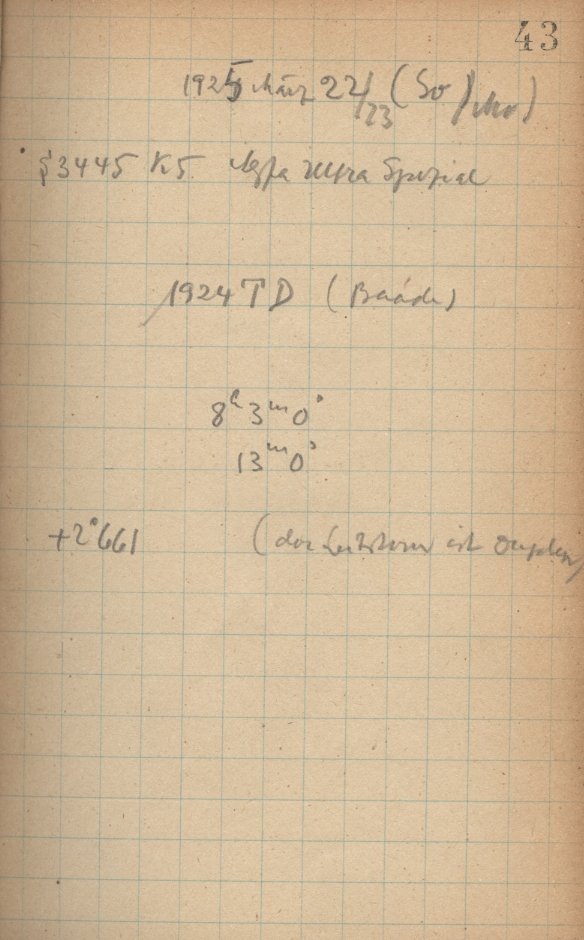 43
1925 März 22/23 (So/Mo)
§3445 K5 Agfa Ultra Spezial
1924 TD (Baade)
8ʰ 3ᵐ 0ˢ
13ᵐ 0ˢ
+2°661 (der Leitstern ist Duplex)